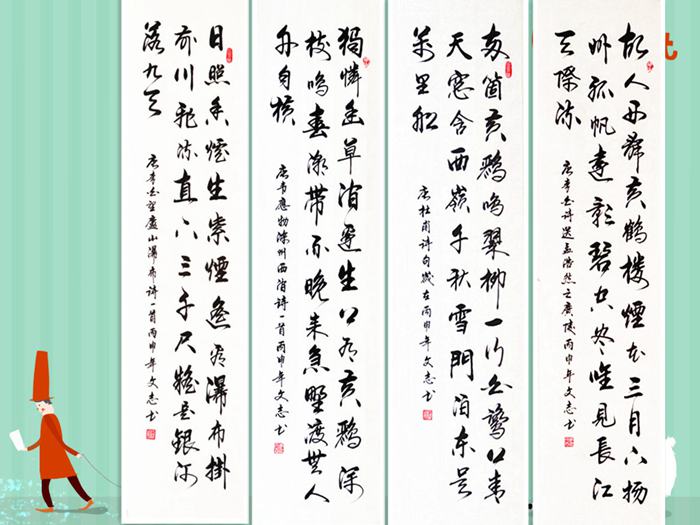 故人西辭黃鶴樓煙花三月下揚
州孤帆遠影碧空盡唯見長江
天際流
唐李白詩送孟浩然之廣陵丙申年文志書
兩箇黃鸝鳴翠柳一行白鷺上青
天窓含西嶺千秋雪門泊東吳
萬里船
唐杜甫詩句歲在丙申年文志書
獨憐幽草澗邊生上有黃鸝深
樹鳴春潮帶雨晚來急野渡無人
舟自橫
唐韋應物滁州西澗詩一首丙申年文志書
日照香爐生紫煙遙看瀑布掛
前川飛流直下三千尺疑是銀河
落九天
唐李白望廬山瀑布詩一首丙申年文志書